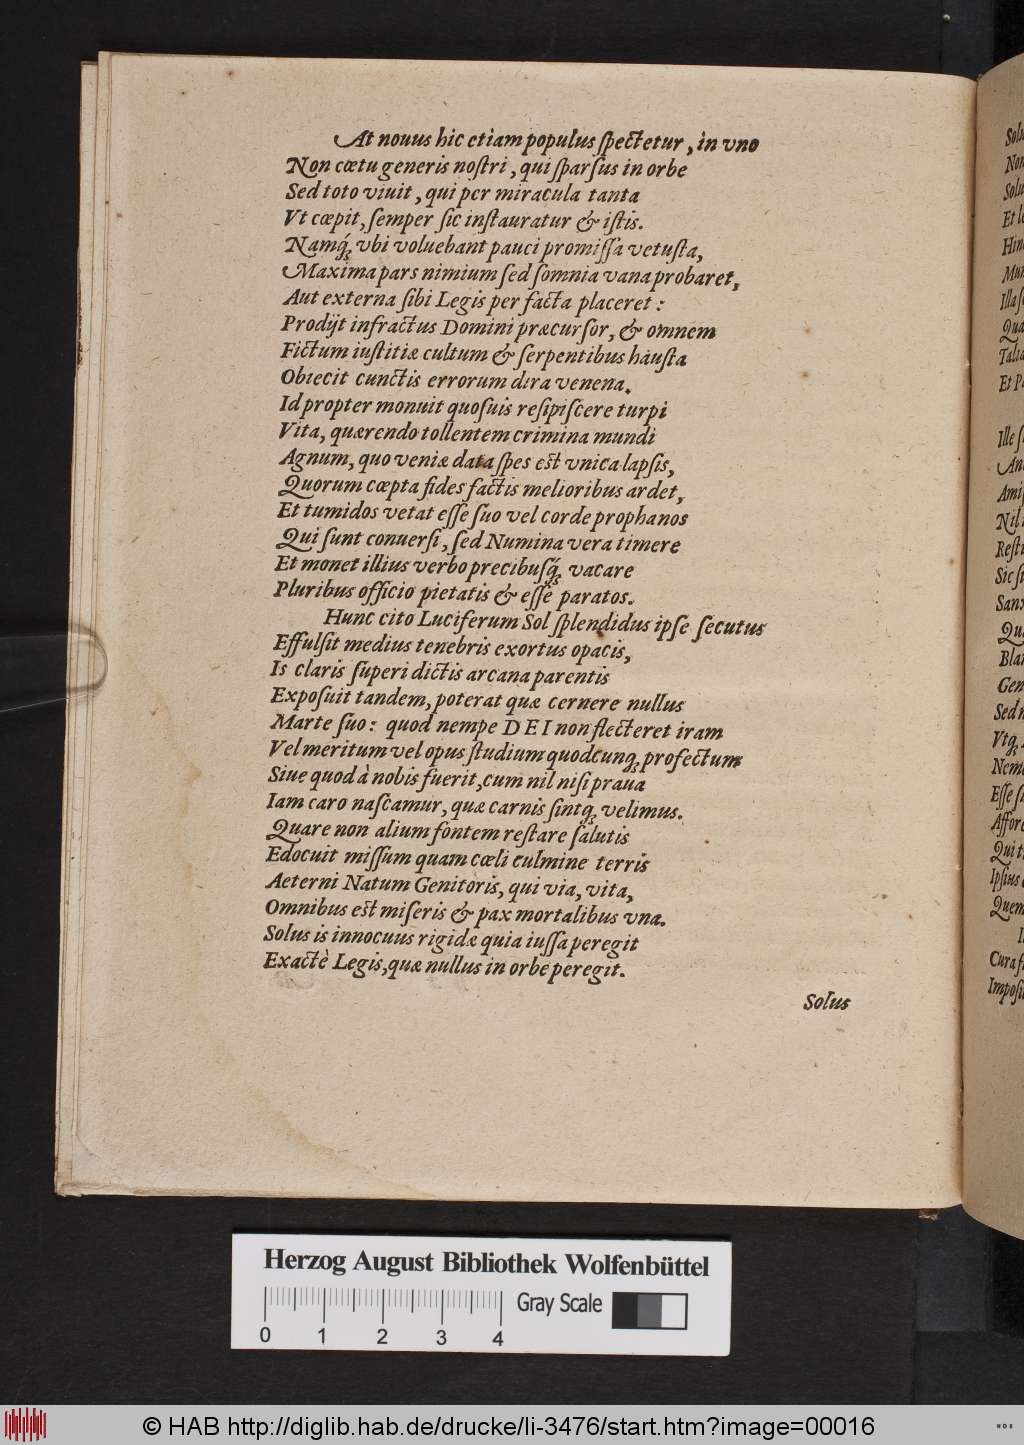 At nouus hic etiam populus spectetur, in vno
Non cœtu generis nostri, qui sparsus in orbe
Sed toto viuit, qui per miracula tanta
Vt cœpit, semper sic instauratur & istis.
Namq́; vbi voluebant pauci promissa vetusta,
Maxima pars nimium sed somnia vana probaret,
Aut externa sibi Legis per facta placeret:
Prodijt infractus Domini præcursor, & omnem
Fictum iustitiæ cultum & serpentibus hausta
Obiecit cunctis errorum dira venena.
Id propter monuit quosuis resipiscere turpi
Vita, quærendo tollentem crimina mundi
Agnum, quo veniæ data spes est vnica lapsis,
Quorum cœpta fides factis melioribus ardet,
Et tumidos vetat esse suo vel corde prophanos
Qui sunt conuersi, sed Numina vera timere
Et monet illius verbo precibusq́; vacare
Pluribus officio pietatis & esse paratos.
Hunc cito Luciferum Sol splendidus ipse secutus
Effulsit medius tenebris exortus opacis,
Is claris superi dictis arcana parentis
Exposuit tandem, poterat quæ cernere nullus
Marte suo: quod nempe DEI non flecteret iram
Vel meritum vel opus studium quodcunq; profectum
Siue quod à nobis fuerit, cum nil nisi praua
Iam caro nascamur, quæ carnis sintq; velimus.
Quare non alium fontem restare salutis
Edocuit missum quam cœli culmine terris
Aeterni Natum Genitoris, qui via, vita,
Omnibus est miseris & pax mortalibus vna.
Solus is innocuus rigidæ quia iussa peregit
Exactè Legis, quæ nullus in orbe peregit.
Solus
Herzog August Bibliothek Wolfenbüttel
Gray Scale
0 1 2 3 4
© HAB http://diglib.hab.de/drucke/li-3476/start.htm?image=00016